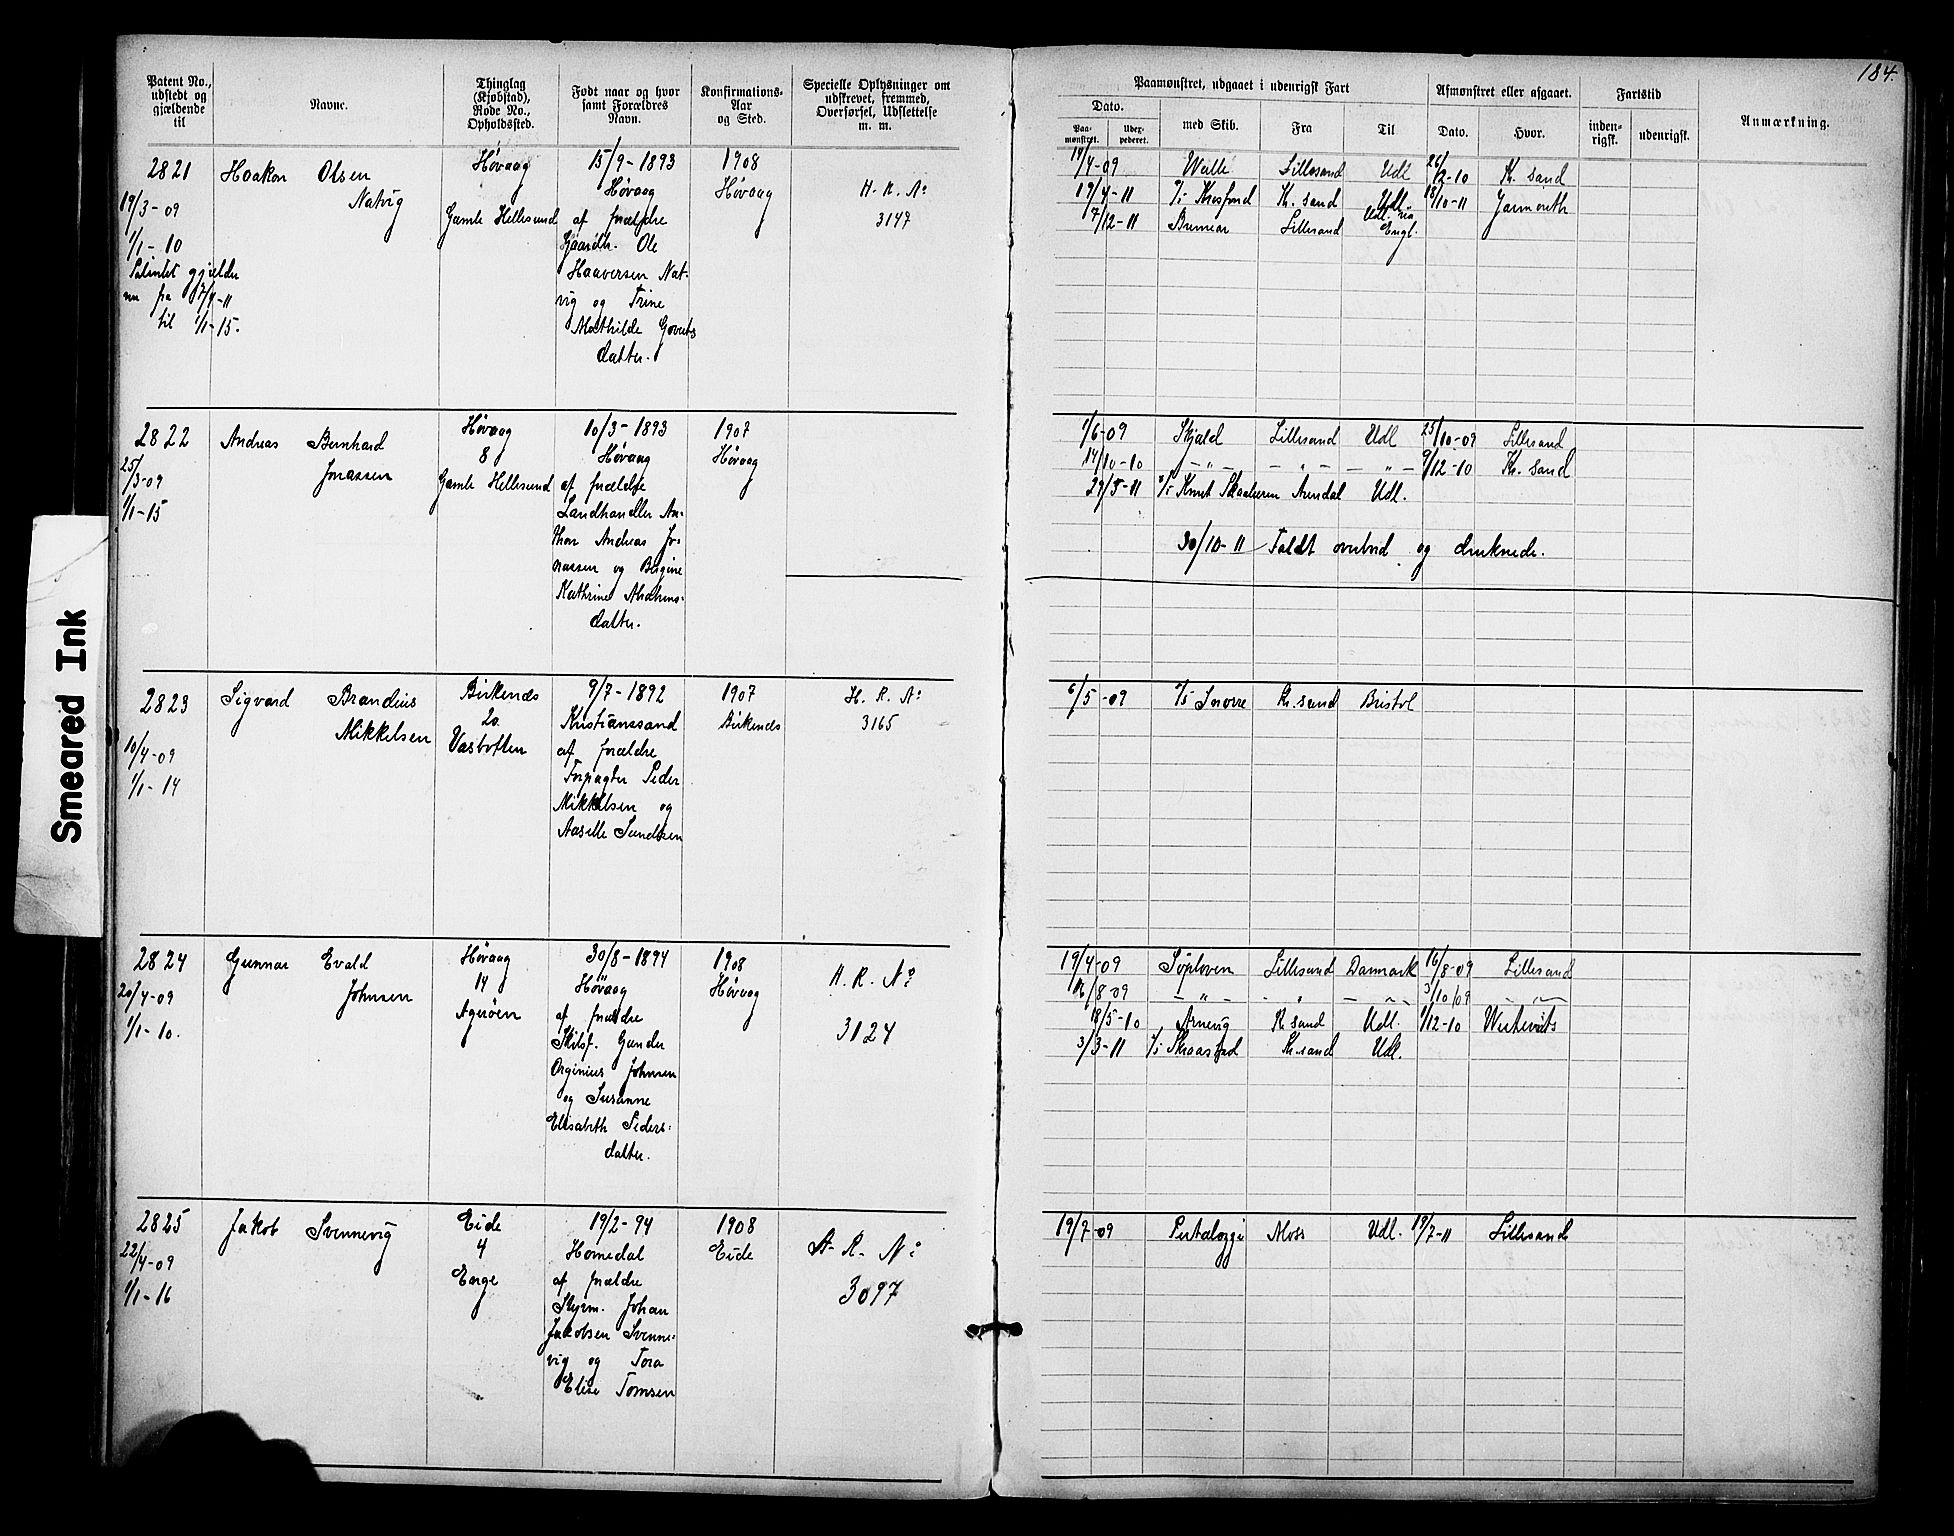 184
Patent No., udstedt og gjældende til
Navne.
Thinglag (Kjøbstad), Rode No., Opholdssted.
Født naar og hvor samt Forældres Navn.
Konfirmations-Aar og Sted.
Specielle Oplysninger om udskrevet, fremmed, Overførsel, Udslettelse m. m.
Paamønstret, udgaaet i udenrigsk Fart
Dato.
Paa-mønstret.
Udex-pederet.
med Skib.
Fra
Til
Afmønstret eller afgaaet.
Dato.
Hvor.
Fartstid
inden-rigsk.
udenrigsk.
Anmærkning.
2821
19/3-09
1/1-10
Patentet gjælder
nu fra 7/4-11
til 1/1-15.
Haakon Olsen
Natvig
Høvaag
Gamle Hellesund
15/9-1893
Høvaag
af forældre
Gaardbr. Ole
Haaversen Nat-
vig og Trine
Mathilde Goverts
datter.
1908
Høvaag
H. R. No
3147
14/4-09 Lillesand Udl 26/2-10 Kr. sand
19/4-11 Kr. sand Udl. 18/10-11 Jarmouth
7/12-11 Bremear Lillesand Udl. via Engl.
2822
25/3-09
1/1-15
Andreas Bernhard
Jonassen
Høvaag
8
Gamle Hellesund
10/3-1893
Høvaag
af forældre
Landhandler An-
thon Andreas Jo-
nassen og Bergine
Kathrine
datter.
1907
Høvaag
1/6-09 Skjold Lillesand Udl 25/10-09 Lillesand
14/10-10 — „ — — „ — — „ — 9/12-10 Kr. sand
29/5-11 s/s Knut Skaaluren Arendal Udl.
30/10-11 Faldt overbord og druknede.
2823
10/4-09
1/1-14
Sigvard Brandius
Mikkelsen
Birkenes
20
Vastoften
9/7-1892
Kristianssand
af forældre
Forpagter Peder
Mikkelsen og
Aaselle Sundtsen
1907
Birkenes
H. R. No
3165
6/5-09 s/s Snorre Kr. sand Bristol
2824
20/4-09
1/1-10.
Gunnar Evald
Johnsen
Høvaag
14
Agerøen
30/8-1894
Høvaag
af forældre
Skibsf. Gunder
Orginius Johnsen
og Susanne
Elisabeth Peders-
datter.
1908
Høvaag
H. R. No
3124
19/4-09 Søploven Lillesand Danmark 16/8-09 Lillesand
16/8-09 — „ — - „ — „ — 3/10/09 — „ —
18/5-10 Arnevig Kr. sand Udl. 1/12-10
3/3-11 s/s Skaastad Kr. sand Udl.
2825
22/4-09
1/1-16
Jakob Svennevig
Eide
4
Enge
19/2-94
Homedal
af forældre
Styrm. Johan
Jakobsen Svenne-
vig og Tora
Elise Tomsen
1908
Eide
H. R. No
3097
19/7-09 Pestalozzi Moss Udl. 19/7-11 Lillesand
Smeared Ink